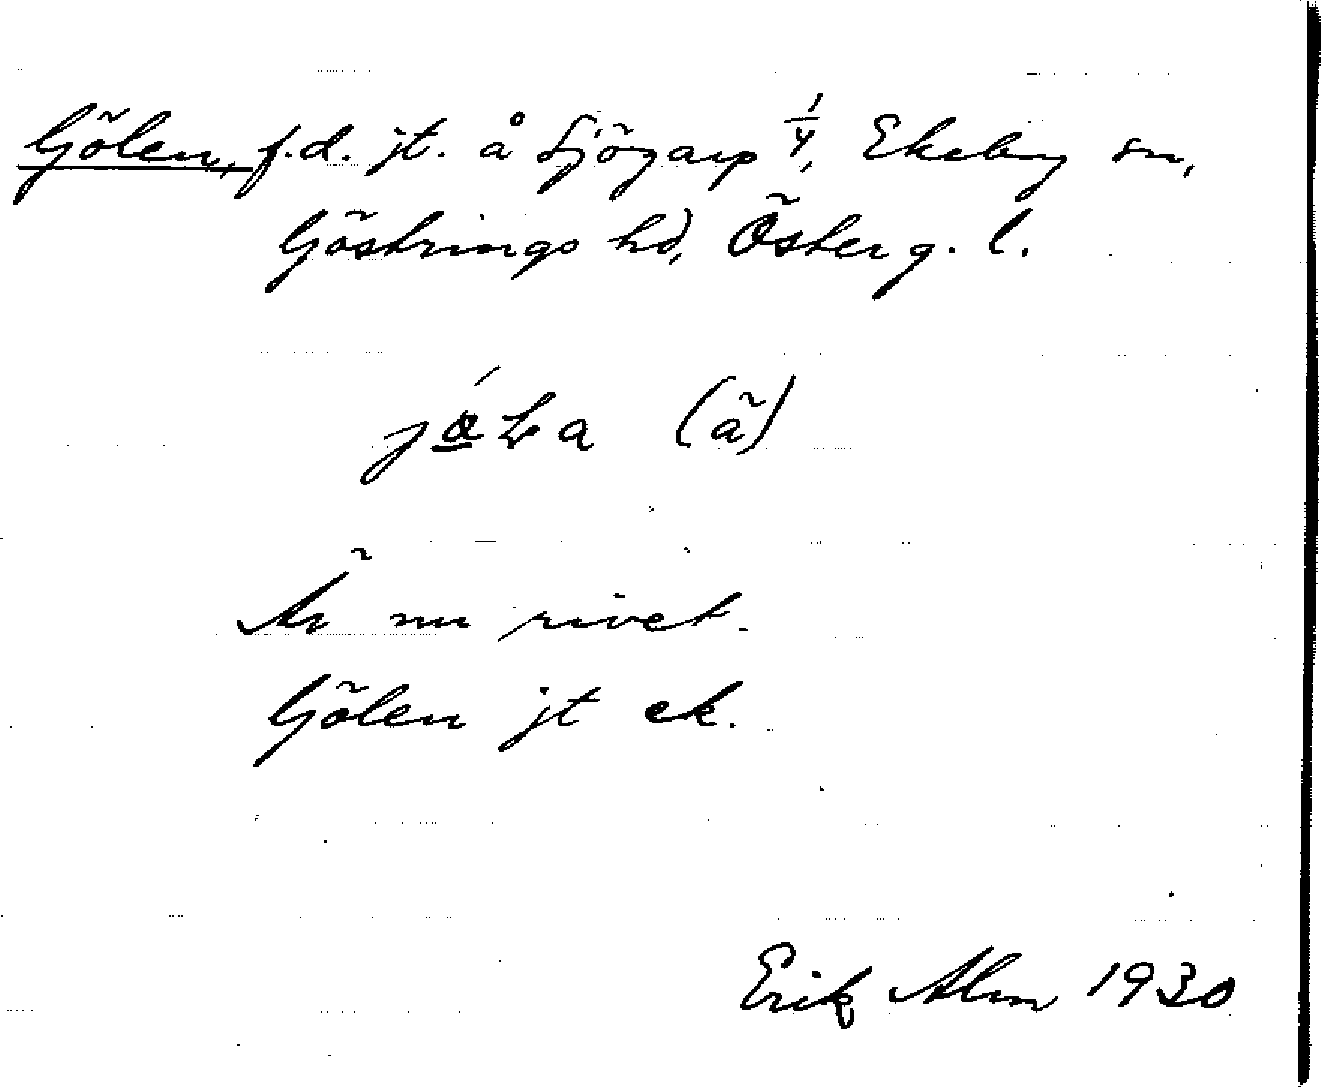 Gölen, f.d. jt. å Sjögarp 1/4, Ekeby sn,
Göstrings hd, Österg. l.
(ä)
Är nu rivet.
Gölen jt ek.
Erik Alm 1930